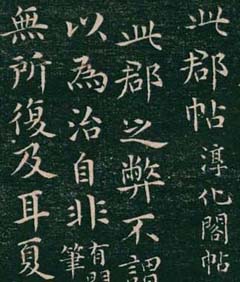 此郡帖 淳化閣帖
此郡之弊不謂
以為治自非
有
筆
無所復及耳夏